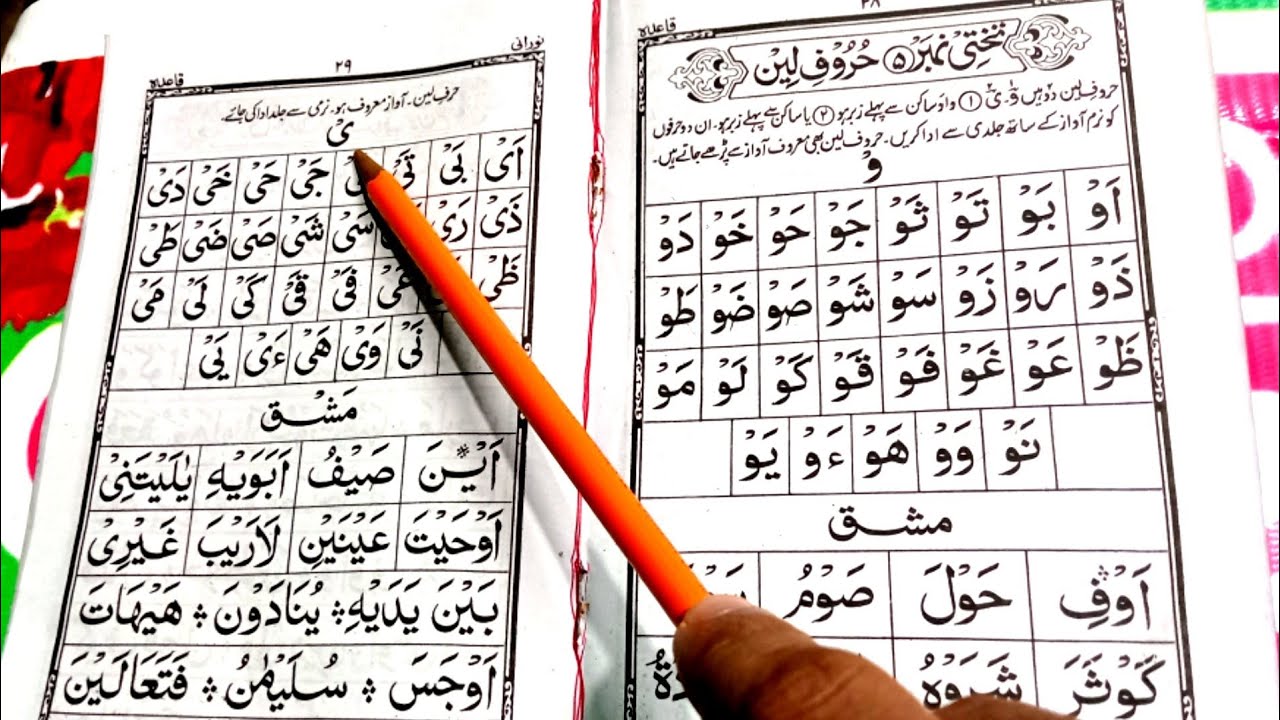 ۲۸
قاعدہ
تختی نمبر ۵ حُرُوفِ لِین
حروفِ لین دو ہیں وْ۔ یْ ① واؤ ساکن سے پہلے زبر ہو ② یا ساکن سے پہلے زبر ہو۔ ان دو حرفوں
کو نرم آواز کے ساتھ جلدی سے ادا کریں۔ حروف لین بھی معروف آواز سے پڑھے جاتے ہیں۔
وْ
اَوْ بَوْ تَوْ ثَوْ جَوْ حَوْ خَوْ دَوْ
ذَوْ رَوْ زَوْ سَوْ شَوْ صَوْ ضَوْ طَوْ
ظَوْ عَوْ غَوْ فَوْ قَوْ كَوْ لَوْ مَوْ
نَوْ وَوْ هَوْ ءَوْ يَوْ
مشق
اَوْفِ حَوْلَ صَوْمُ
كَوْثَرَ شَرَوْهُ
نورانی
۲۹
قاعدہ
حرفِ لین۔ آواز معروف ہو۔ نرمی سے جلد ادا کی جائے۔
یْ
اَیْ بَیْ تَیْ جَیْ حَیْ خَیْ دَیْ
ذَیْ رَیْ سَیْ شَیْ صَیْ ضَیْ طَیْ
ظَیْ غَیْ فَیْ قَیْ كَیْ لَیْ مَیْ
نَیْ وَیْ هَیْ ءَیْ یَیْ
مَشْق
اَيْنَ صَيْفُ اَبَوَيْهِ يٰلَيْتَنِیْ
اَوْحَيْتَ عَيْنَيْنِ لَارَيْبَ غَيْرِیْ
بَيْنَ يَدَيْهِ يُنَادَوْنَ هَيْهَاتَ
اَوْجَسَ سُلَيْمٰنُ فَتَعَالَيْنَ